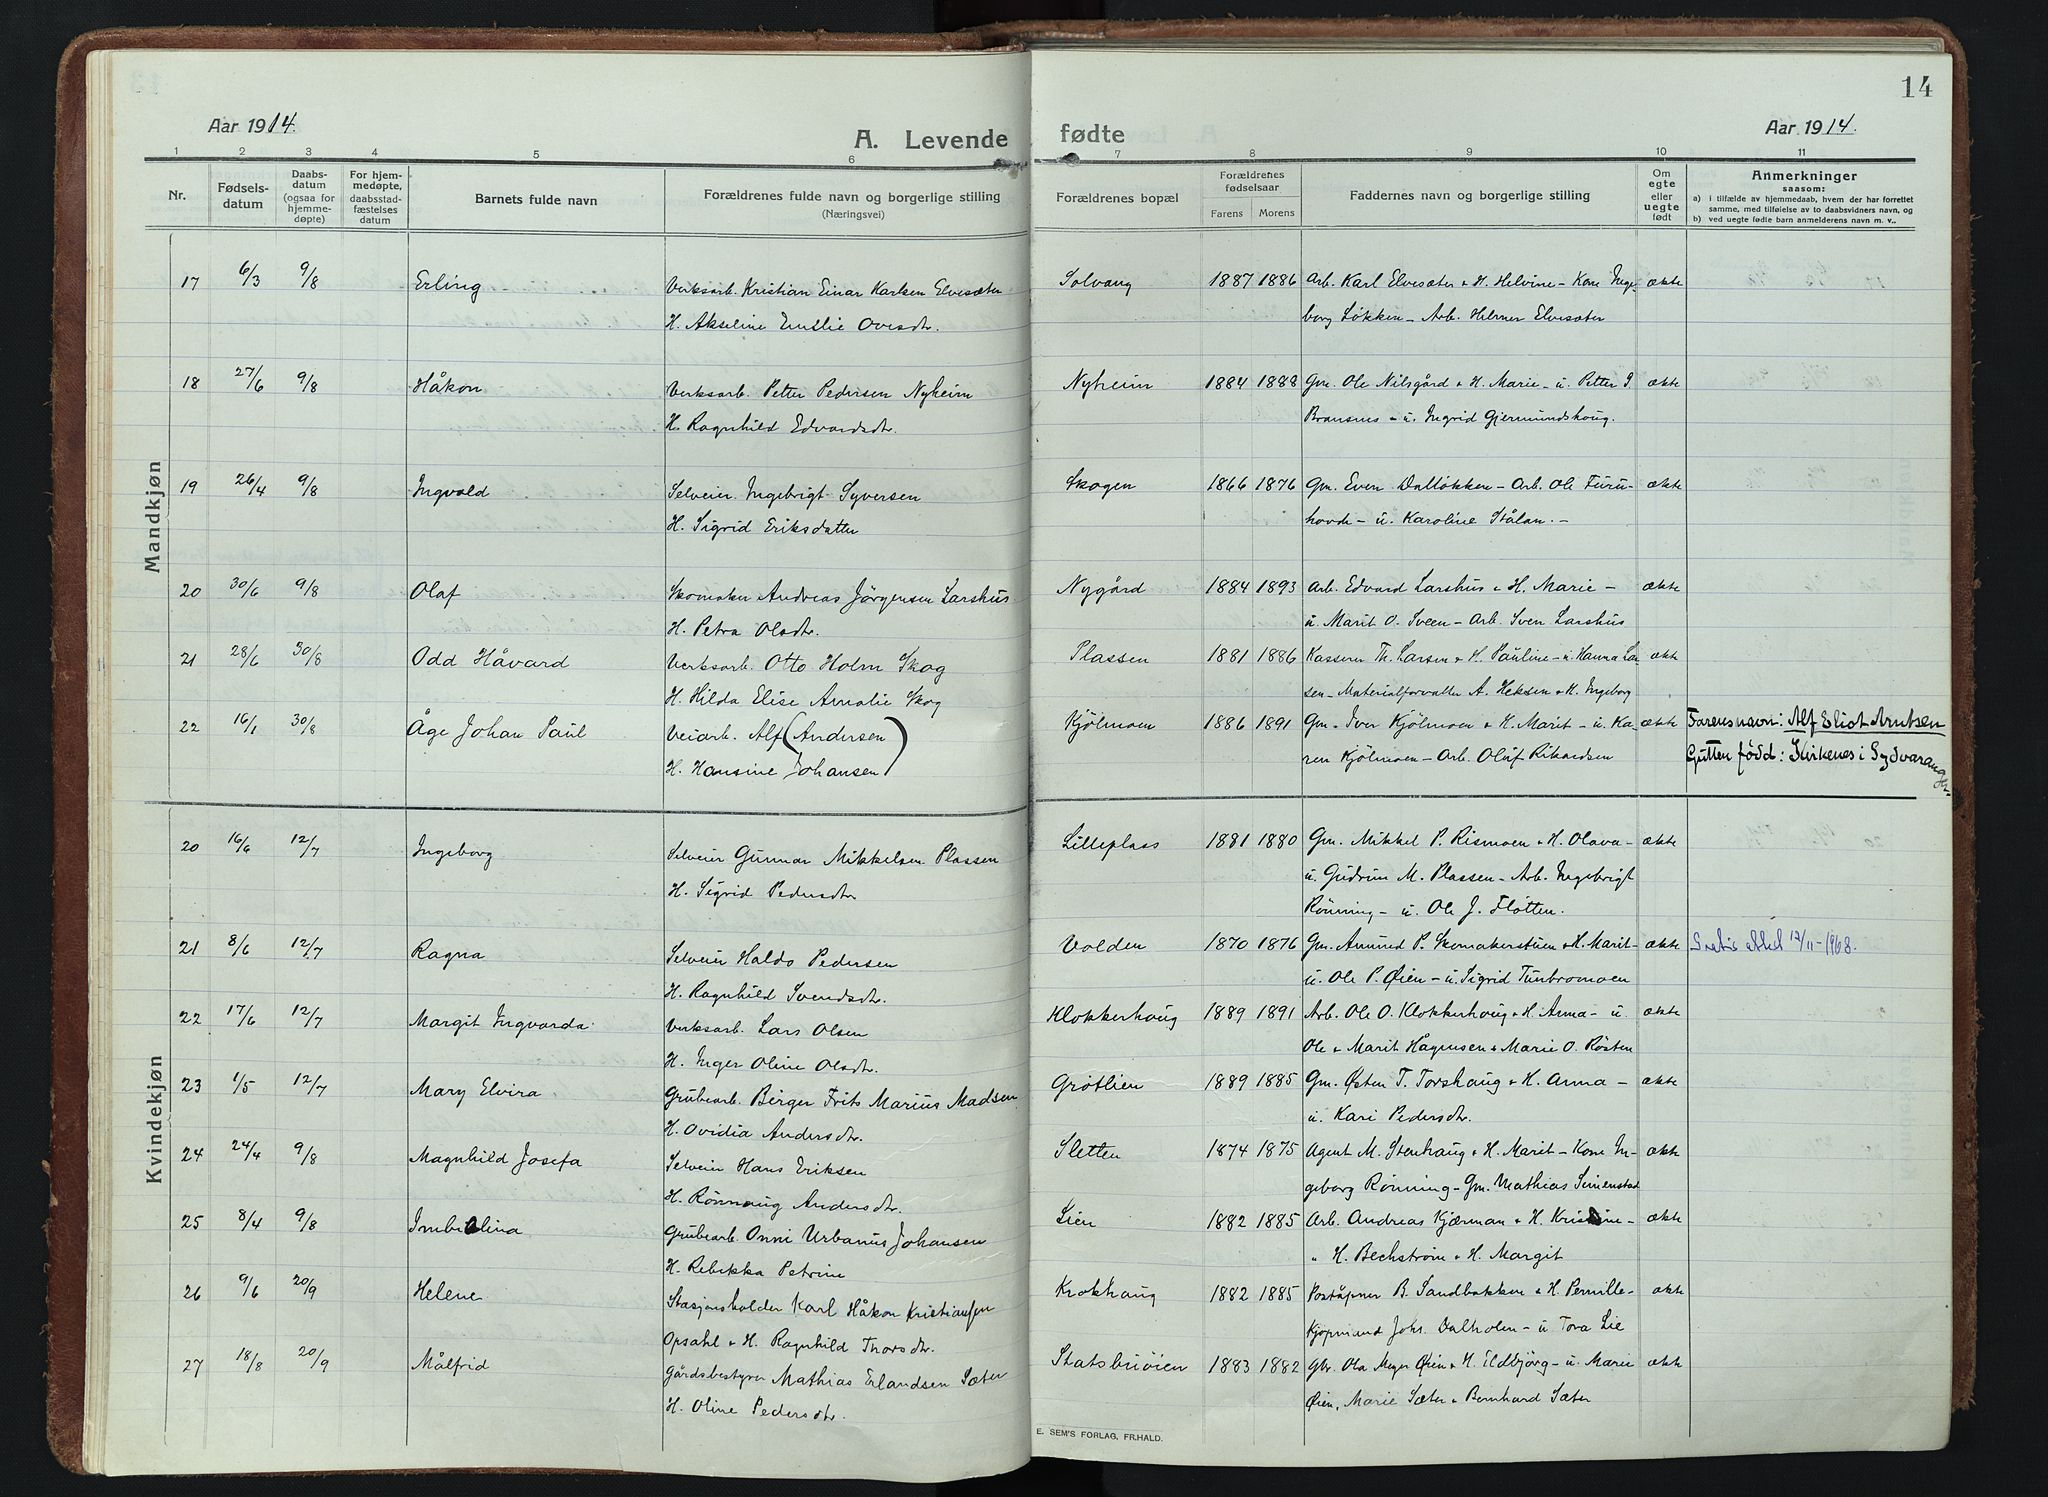 Aar 1914.
A. Levende
1 2 3 4 5 6
Nr.
Fødsels-
datum
Daabs-
datum
(ogsaa for
hjemme-
døpte)
For hjem-
medøpte,
daabsstad-
fæstelses
datum
Barnets fulde navn
Forældrenes fulde navn og borgerlige stilling
(Næringsvei)
Mandkjøn
17 6/3 9/8 Erling Verksarb. Kristian Einar Karlsen Elvesæter
H. Akseline Emilie Ovesdtr.
18 27/6 9/8 Håkon Verksarb. Petter Pedersen Nyheim
H. Ragnhild Edvardsdtr.
19 26/4 9/8 Ingvald Selveier Ingebrigt Syversen
H. Sigrid Eriksdatter
20 30/6 9/8 Olaf Skomaker Andreas Jörgensen Larshus
H. Petra Olsdtr.
21 28/6 30/8 Odd Håvard Verksarb. Otto Holm Skog
H. Hilda Elise Amalie Skog
22 16/1 30/8 Åge Johan Paul Veiarb. Alf (Andersen
H. Hansine Johansen)
Kvindekjøn
20 16/6 12/7 Ingeborg Selveier Gunnar Mikkelsen Plassen
H. Sigrid Pedersdtr
21 8/6 12/7 Ragna Selveier Haldo Pedersen
H. Ragnhild Svendsdtr.
22 17/6 12/7 Margit Ingvarda Verksarb. Lars Olsen
H. Inger Oline Olsdtr.
23 1/5 12/7 Mary Elvira Grubearb. Birger Frits Marius Madsen
H. Ovidia Andersdtr.
24 24/4 9/8 Magnhild Josefa Selveier Hans Eriksen
H. Rönnaug Andersdtr.
25 8/4 9/8 Grubearb. Onni Urbanus Johansen
H. Rebekka Petrine
26 9/6 20/9 Helene Stasjonsholder Karl Håkon Kristiansen
Opsahl & H. Ragnhild Thorsdtr.
27 18/8 20/9 Målfrid Gårdsbestyrer Mathias Erlandsen Sæter
H. Oline Pedersdtr.
14
fødte
Aar 1914.
7 8 9 10 11
Forældrenes bopæl
Forældrenes
fødselsaar
Farens Morens
Faddernes navn og borgerlige stilling
Om
egte
eller
uegte
født
Anmerkninger
saasom:
a) i tilfælde av hjemmedaab, hvem der har forrettet
samme, med tilføielse av to daabsvidners navn, og
b) ved uegte fødte barn anmelderens navn m. v..
Solvang 1887 1886 Arb. Karl Elvesæter & H. Helvine - Kone Inge- ækte
borg Løkken - Arb. Helmer Elvesæter
Nyheim 1884 1888 Gm. Ole Nilsgård & H. Marie - u. Petter S. ækte
Bransnes - u. Ingrid Gjermundshaug.
Skogen 1866 1876 Gm. Even Dalløkken - Arb. Ole Furu- ækte
hovde - u. Karoline Stålan. -
Nygård 1884 1893 Arb. Edvard Larshus & H. Marie - ækte
u. Marit O. Sveen - Arb. Sven Larshus
Plassen 1881 1886 Kasserer Th. Larsen & H. Pauline - u. Hanna Lar- ækte
sen - Materialforvalter A. Heksen & H. Ingeborg
Kjölmoen 1886 1891 Gm. Iver Kjölmoen & H. Marit - u. Ka- ækte Farens navn: Alf Eliot Arntsen
ren Kjölmoen - Arb. Oluf Rikardsen Gutten født: Kirkenes i Sydvaranger
Lilleplass 1881 1880 Gm. Mikkel P. Rismoen & H. Olava - ækte
u. Gudrun M. Plassen - Arb. Ingebrigt
Rönning - u. Ole J. Flötten.
Volden 1870 1876 Gm. Amund P. Skomakerstuen & H. Marit - ækte 12/11-1968.
u. Ole P. Øien - u. Sigrid Tunbromoen
Klokkerhaug 1889 1891 Arb. Ole O. Klokkerhaug & H. Anna - u. ækte
Ole & Marit Hagensen & Marie O. Røsten
Grötlien 1889 1885 Gm. Østen T. Torshaug & H. Anna - ækte
u. Kari Pedersdtr.
Sletten 1874 1875 Agent M. Stenhaug & H. Marit - Kone In- ækte
geborg Rönning - Gm. Mathias Simenstad
Lien 1882 1885 Arb. Andreas Kjærman & H. Kristine - ækte
" H. Bechström & H. Margit
Krokhaug 1882 1885 Poståpner B. Sandbakken & H. Pernille - ækte
Kjøpmand Johs. Dalholen - u Tora Lie
Statsbuöien 1883 1882 Gbr. Ola Meyer Øien & H. Eldbjörg - u. Marie ækte
Øien, Marie Sæter & Bernhard Sæter
E. SEM'S FORLAG, FR.HALD.